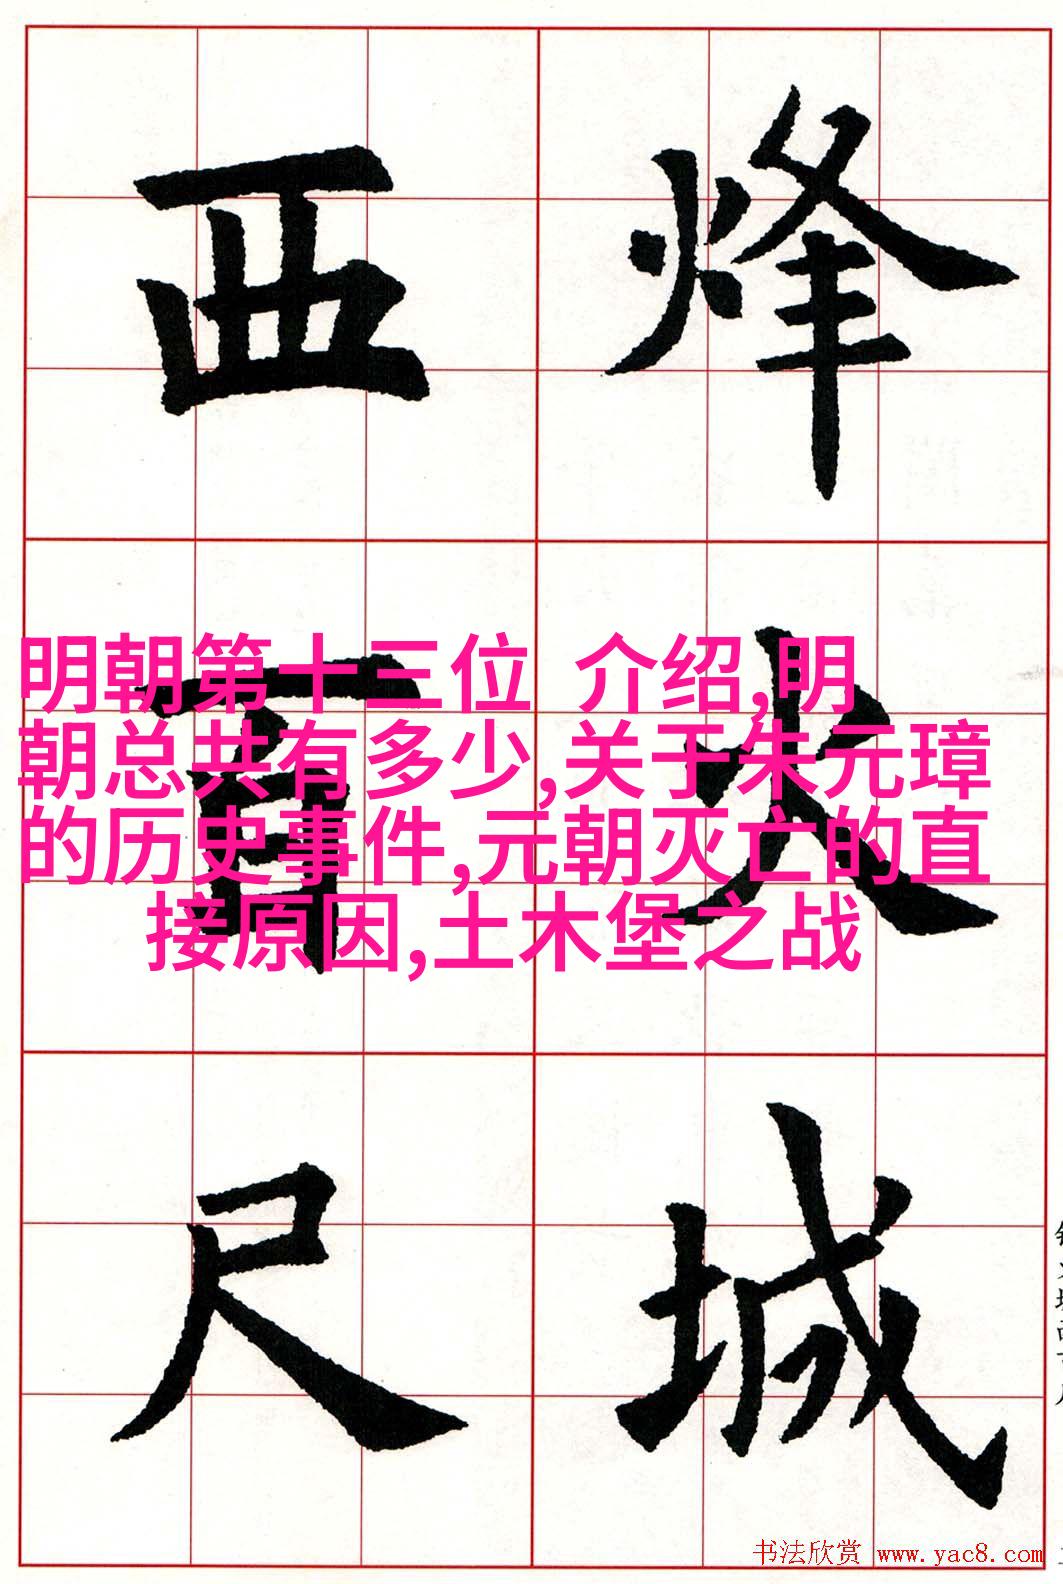 烽火城
西百尺
明朝第十三位 介绍,明
朝总共有多少,关于朱元璋
的历史事件,元朝灭亡的直
接原因,土木堡之战
书法欣赏 www.yac8.com